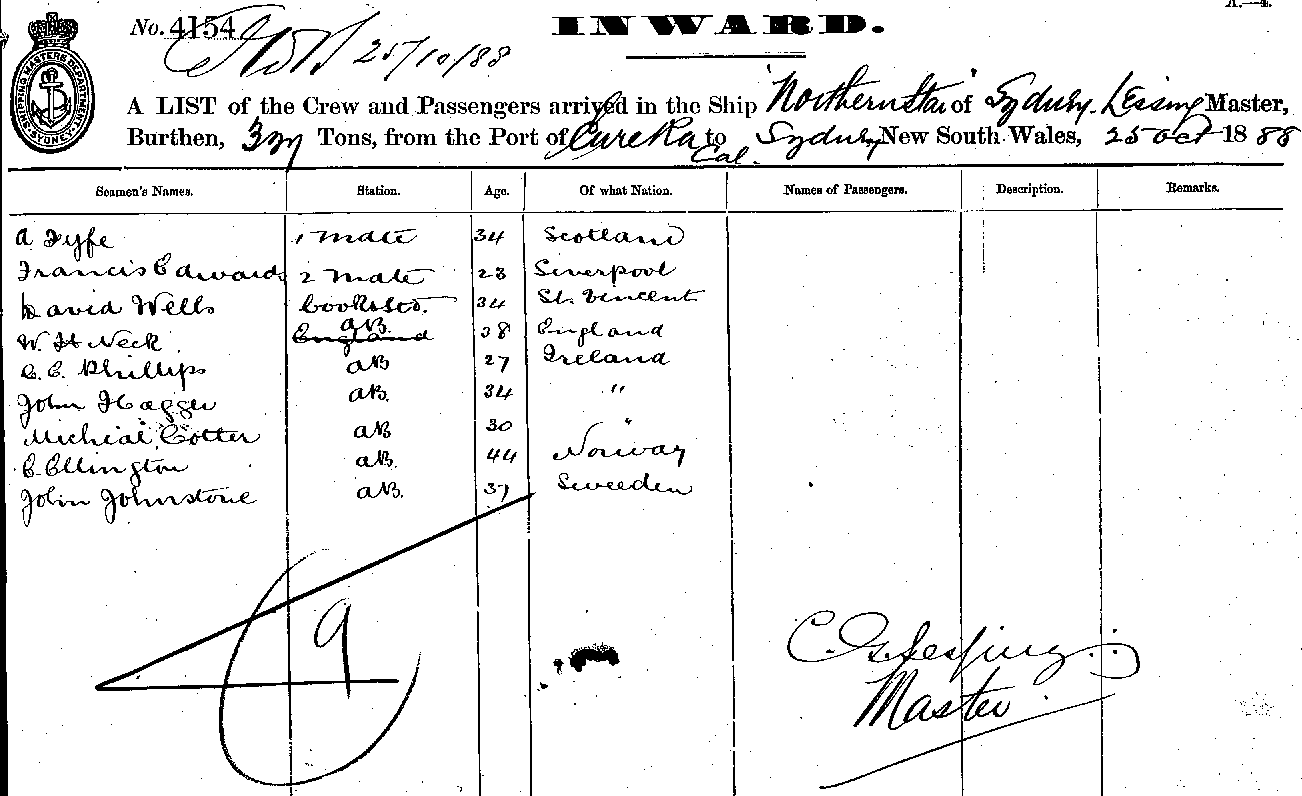 A.—4.
No. 4154
INWARD.
25/10/88
SHIPPING MASTERS DEPARTMENT SYDNEY
A LIST of the Crew and Passengers arrived in the Ship "Northern Star" of Sydney. Lessing Master,
Burthen, Tons, from the Port of Eureka Cal. to Sydney New South Wales, 25 Oct 1888
Seamen's Names. Station. Age. Of what Nation. Names of Passengers. Description. Remarks.
A Fyfe 1 Mate 34 Scotland
Francis Edwards 2 Mate 23 Liverpool
David Wells Cook & Std. 34 St. Vincent
W. H Neck England AB. 38 England
C. C. Phillips AB 27 Ireland
John Hagger AB. 34 "
Micheal Cotter AB 30 "
C. Ellington AB. 44 Norway
John Johnstone AB. 37 Sweeden
9
C. G. Lessing
Master